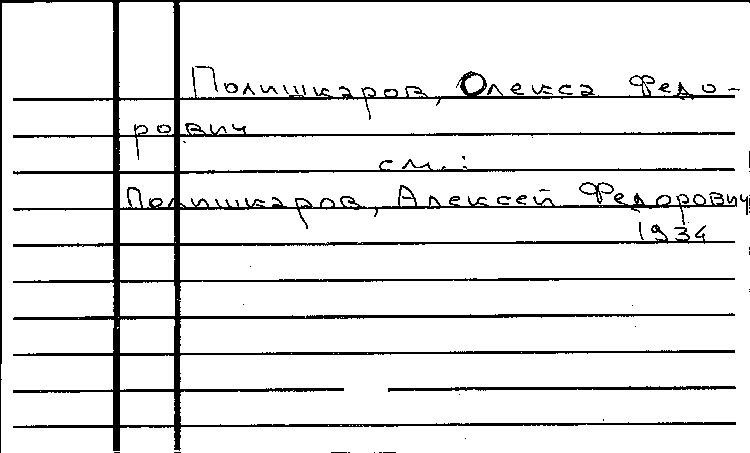 Полишкаров, Олекса Федо-
рович
см.:
Полишкаров, Алексей Федорович
1934